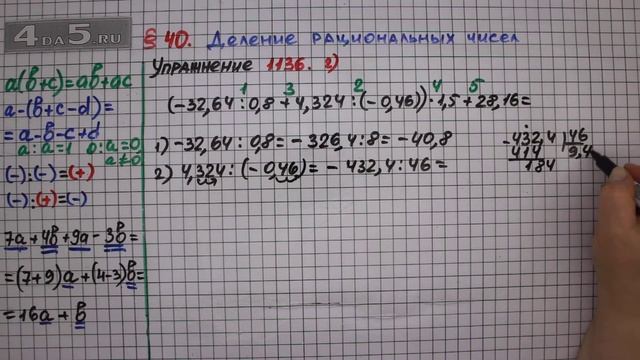 4DA5.RU
§ 40. Деление рациональных чисел
Упражнение 1136. г)
1 3 2 4 5
(-32,64 : 0,8 + 4,324 : (-0,46)) · 1,5 + 28,16 =
1) -32,64 : 0,8 = -326,4 : 8 = -40,8
2) 4,324 : (-0,46) = -432,4 : 46 =
-432,4 | 46
414 | 9,4
184
a(b+c)=ab+ac
a-(b+c-d)=
=a-b-c+d
a:a=1 0:a=0
a≠0
(-):(-)=(+)
(-):(+)=(-)
7a+4b+9a-3b=
=(7+9)a+(4-3)b=
=16a+b